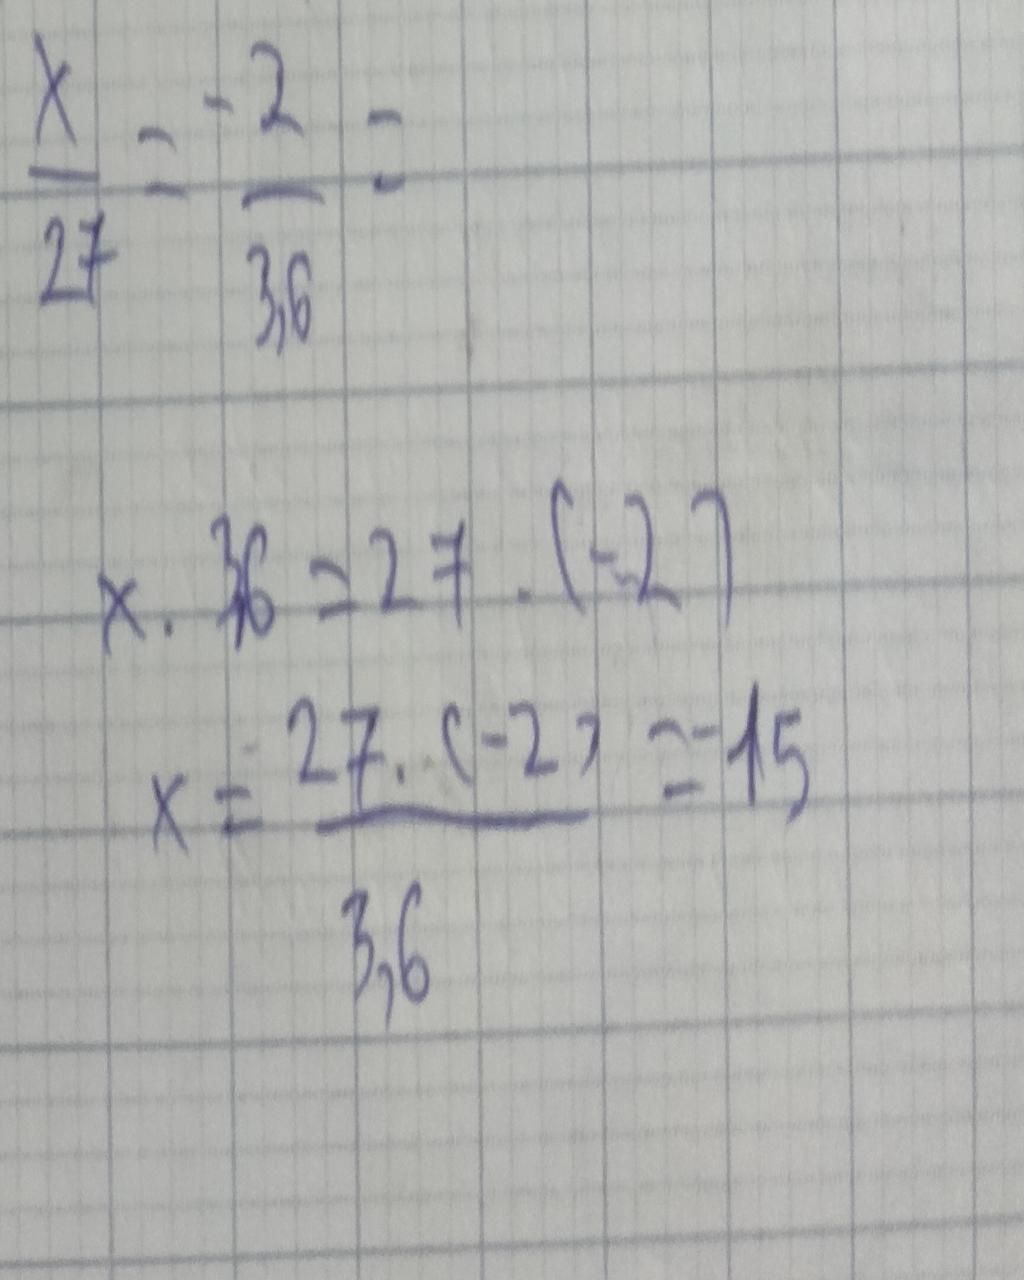 x/27 = -2/3,6 =
x . 3,6 = 27 . (-2)
x = 27 . (-2)/3,6 = -15